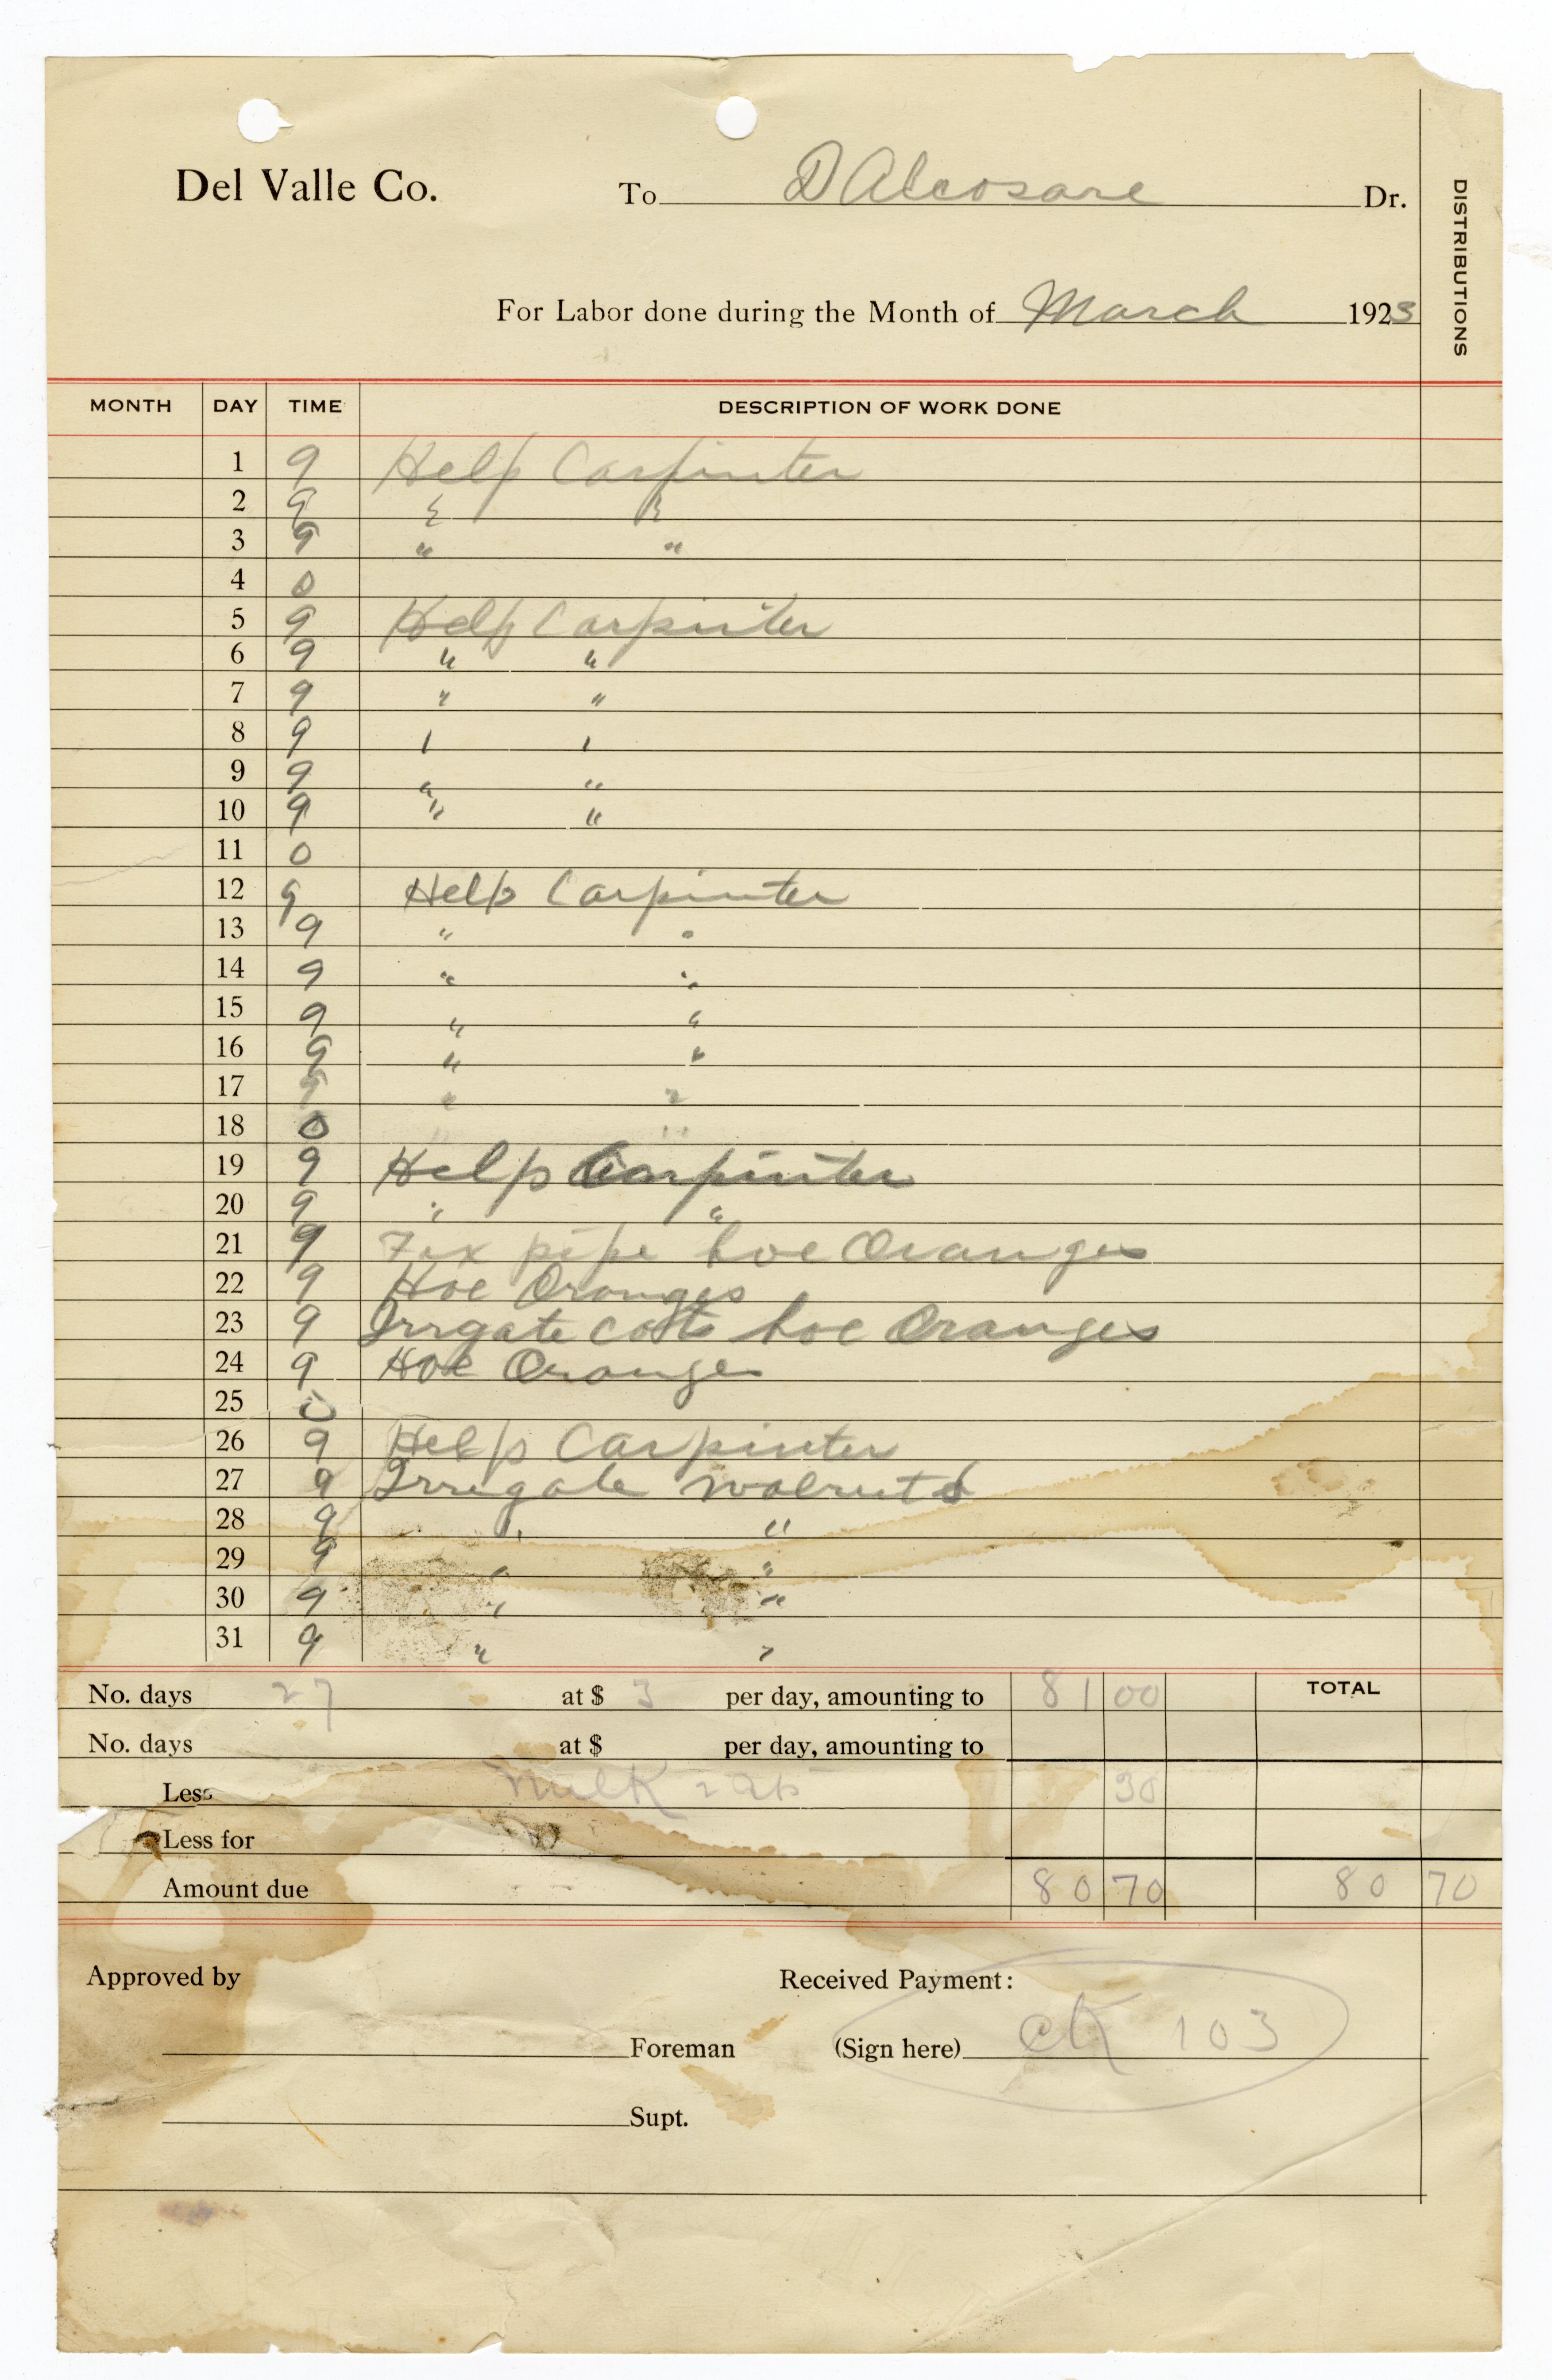 Del Valle Co. To D Alcosare Dr.
DISTRIBUTIONS
For Labor done during the Month of March 1923
MONTH DAY TIME DESCRIPTION OF WORK DONE
1 9 Help Carpinter
2 9 " "
3 9 " "
4 0
5 9 Help Carpinter
6 9 " "
7 9 " "
8 9 " "
9 9 " "
10 9 " "
11 0
12 9 Help Carpinter
13 9 " "
14 9 " "
15 9 " "
16 9 " "
17 9 " "
18 0 " "
19 9 Help Carpinter
20 9 " "
21 9 Fix pipe hoe Oranges
22 9 Hoe Oranges
23 9 Irrgate cots hoe Oranges
24 9 Hoe Oranges
25 0
26 9 Help Carpinter
27 9 Irrigate walnuts
28 9 " "
29 9 " "
30 9 " "
31 9 " "
No. days 27 at $ 3 per day, amounting to 81 00 TOTAL
No. days at $ per day, amounting to
Less Milk 30
Less for
Amount due 80 70 80 70
Approved by Received Payment:
Foreman (Sign here) CK 103
Supt.